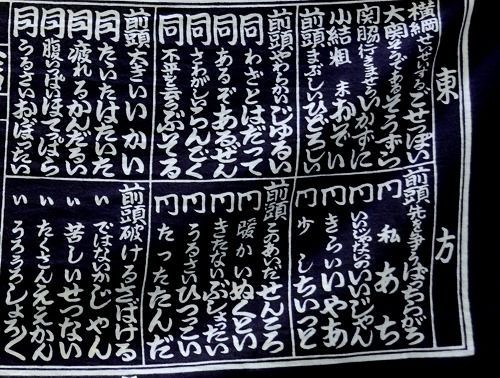 東方
横綱 こせっぽい
大関 そうである そうずら
関脇 行きますよ いかずに
小結 粗末 おぞい
前頭 まぶしい ひどろしい
前頭 やわらかい じゅるい
同 わざと はだって
同 あるぞ あるぜん
同 らんごく
同 不平を言う ぶそる
前頭 大きい いかい
同 たいた はたいた
同 疲れる かんだるい
同 腹いっぱい ほっつぱら
同 うるさい おぼったい
前頭 先を争う ばっちらがち
同 私 あち
同 いいじゃないの いいじゃん
同 きらい いやあ
同 少し ちいっと
前頭 このあいだ せんころ
同 暖かい ぬくとい
同 きたない ぶしょったい
同 うるさい ひつっこい
同 たった たんだ
前頭 破ける ざばける
い ではないか じゃん
い 苦しい せつない
い たくさん ええかん
い うろうろ しょろく